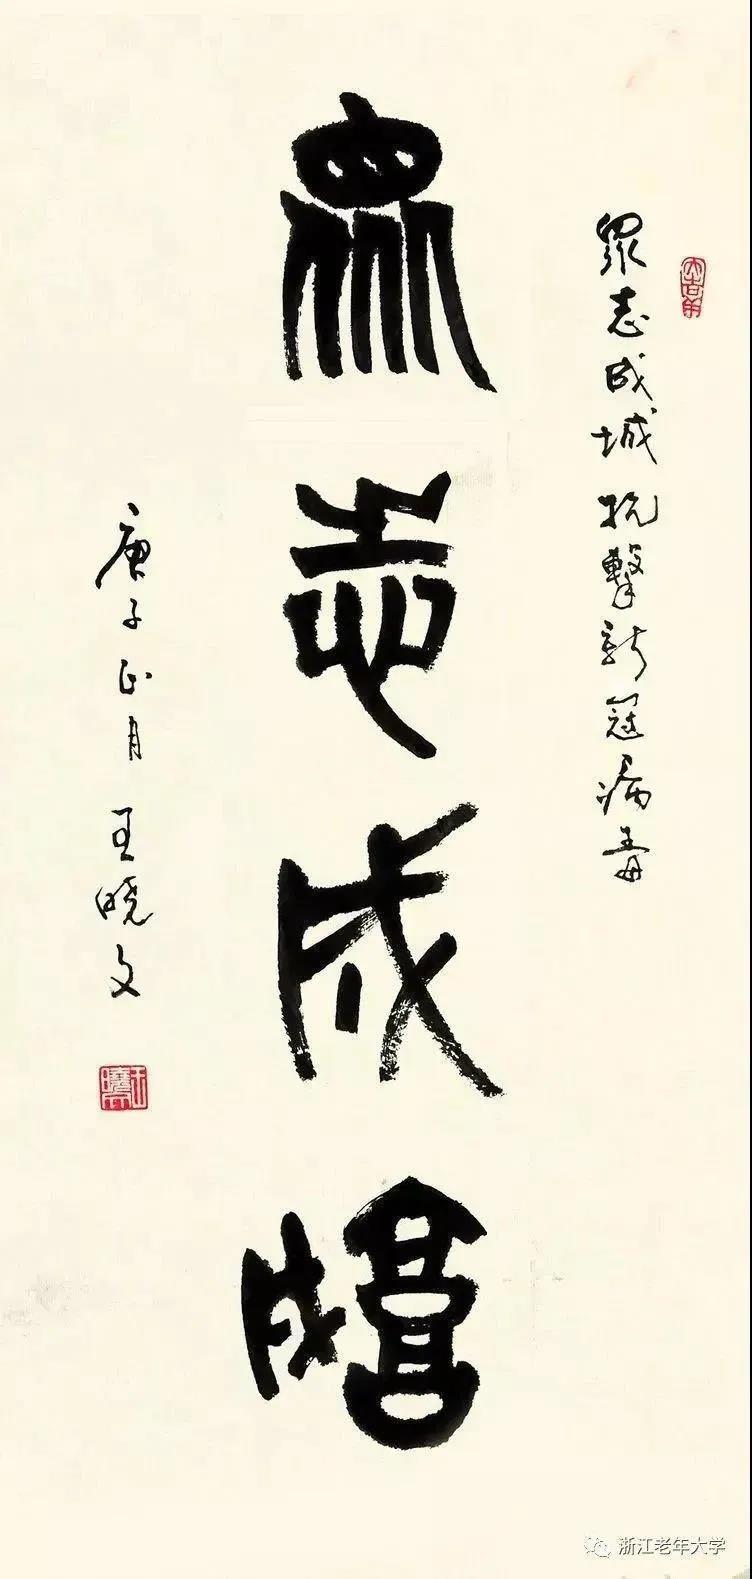 眾志成城抗擊新冠病毒
眾志成城
庚子正月 王曉文
大吉羊
王曉文
浙江老年大学